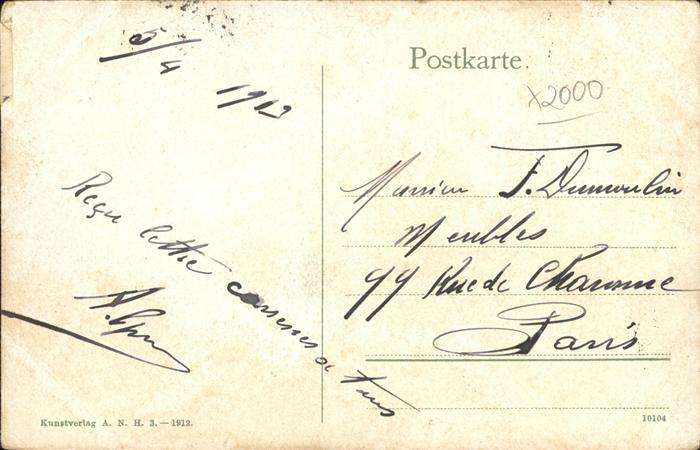 5/4 1913
Reçu lettre caresses à tous
Postkarte.
x2000
Monsieur F. Dumoulin
Meubles
99 Rue de Charonne
Paris
Kunstverlag A. N. H. 3. — 1912.
10104